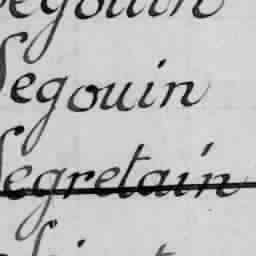 Segouin
Segouin
Segretain